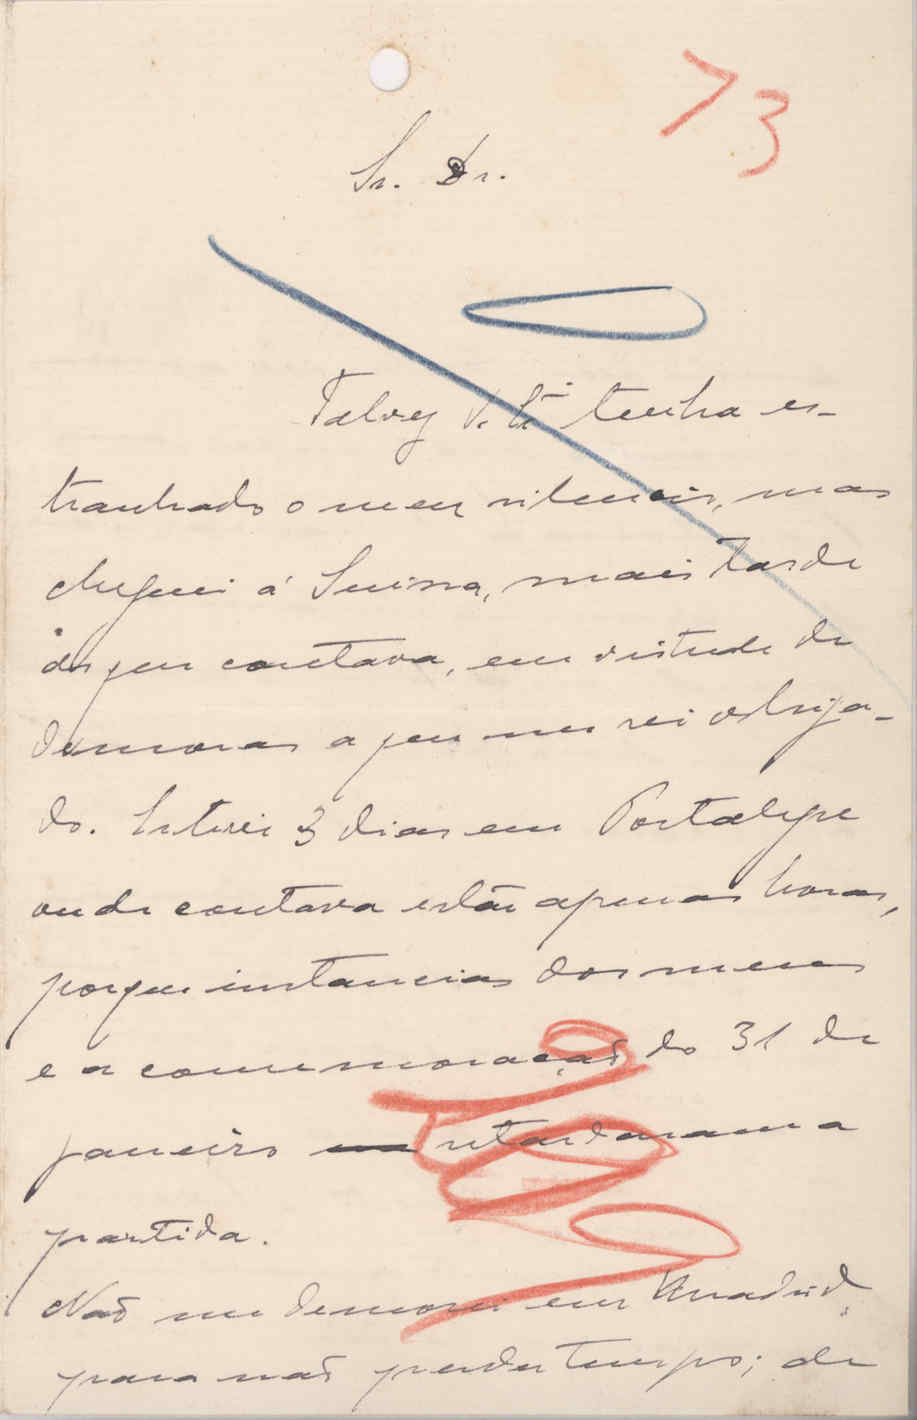 73
Sr. Dr.
Talvez V. Ex.ª tenha es-
tranhado o meu silencio, mas
cheguei á Suissa, mais tarde
do que contava, em virtude de
demoras a que me vi obriga-
do. Estive 3 dias em Portalegre
onde contava estar apenas horas,
porque instancias dos meus
e a comemoração do 31 de
janeiro retardaram a
partida.
Não me demorei em Madrid,
para não perder tempo; de